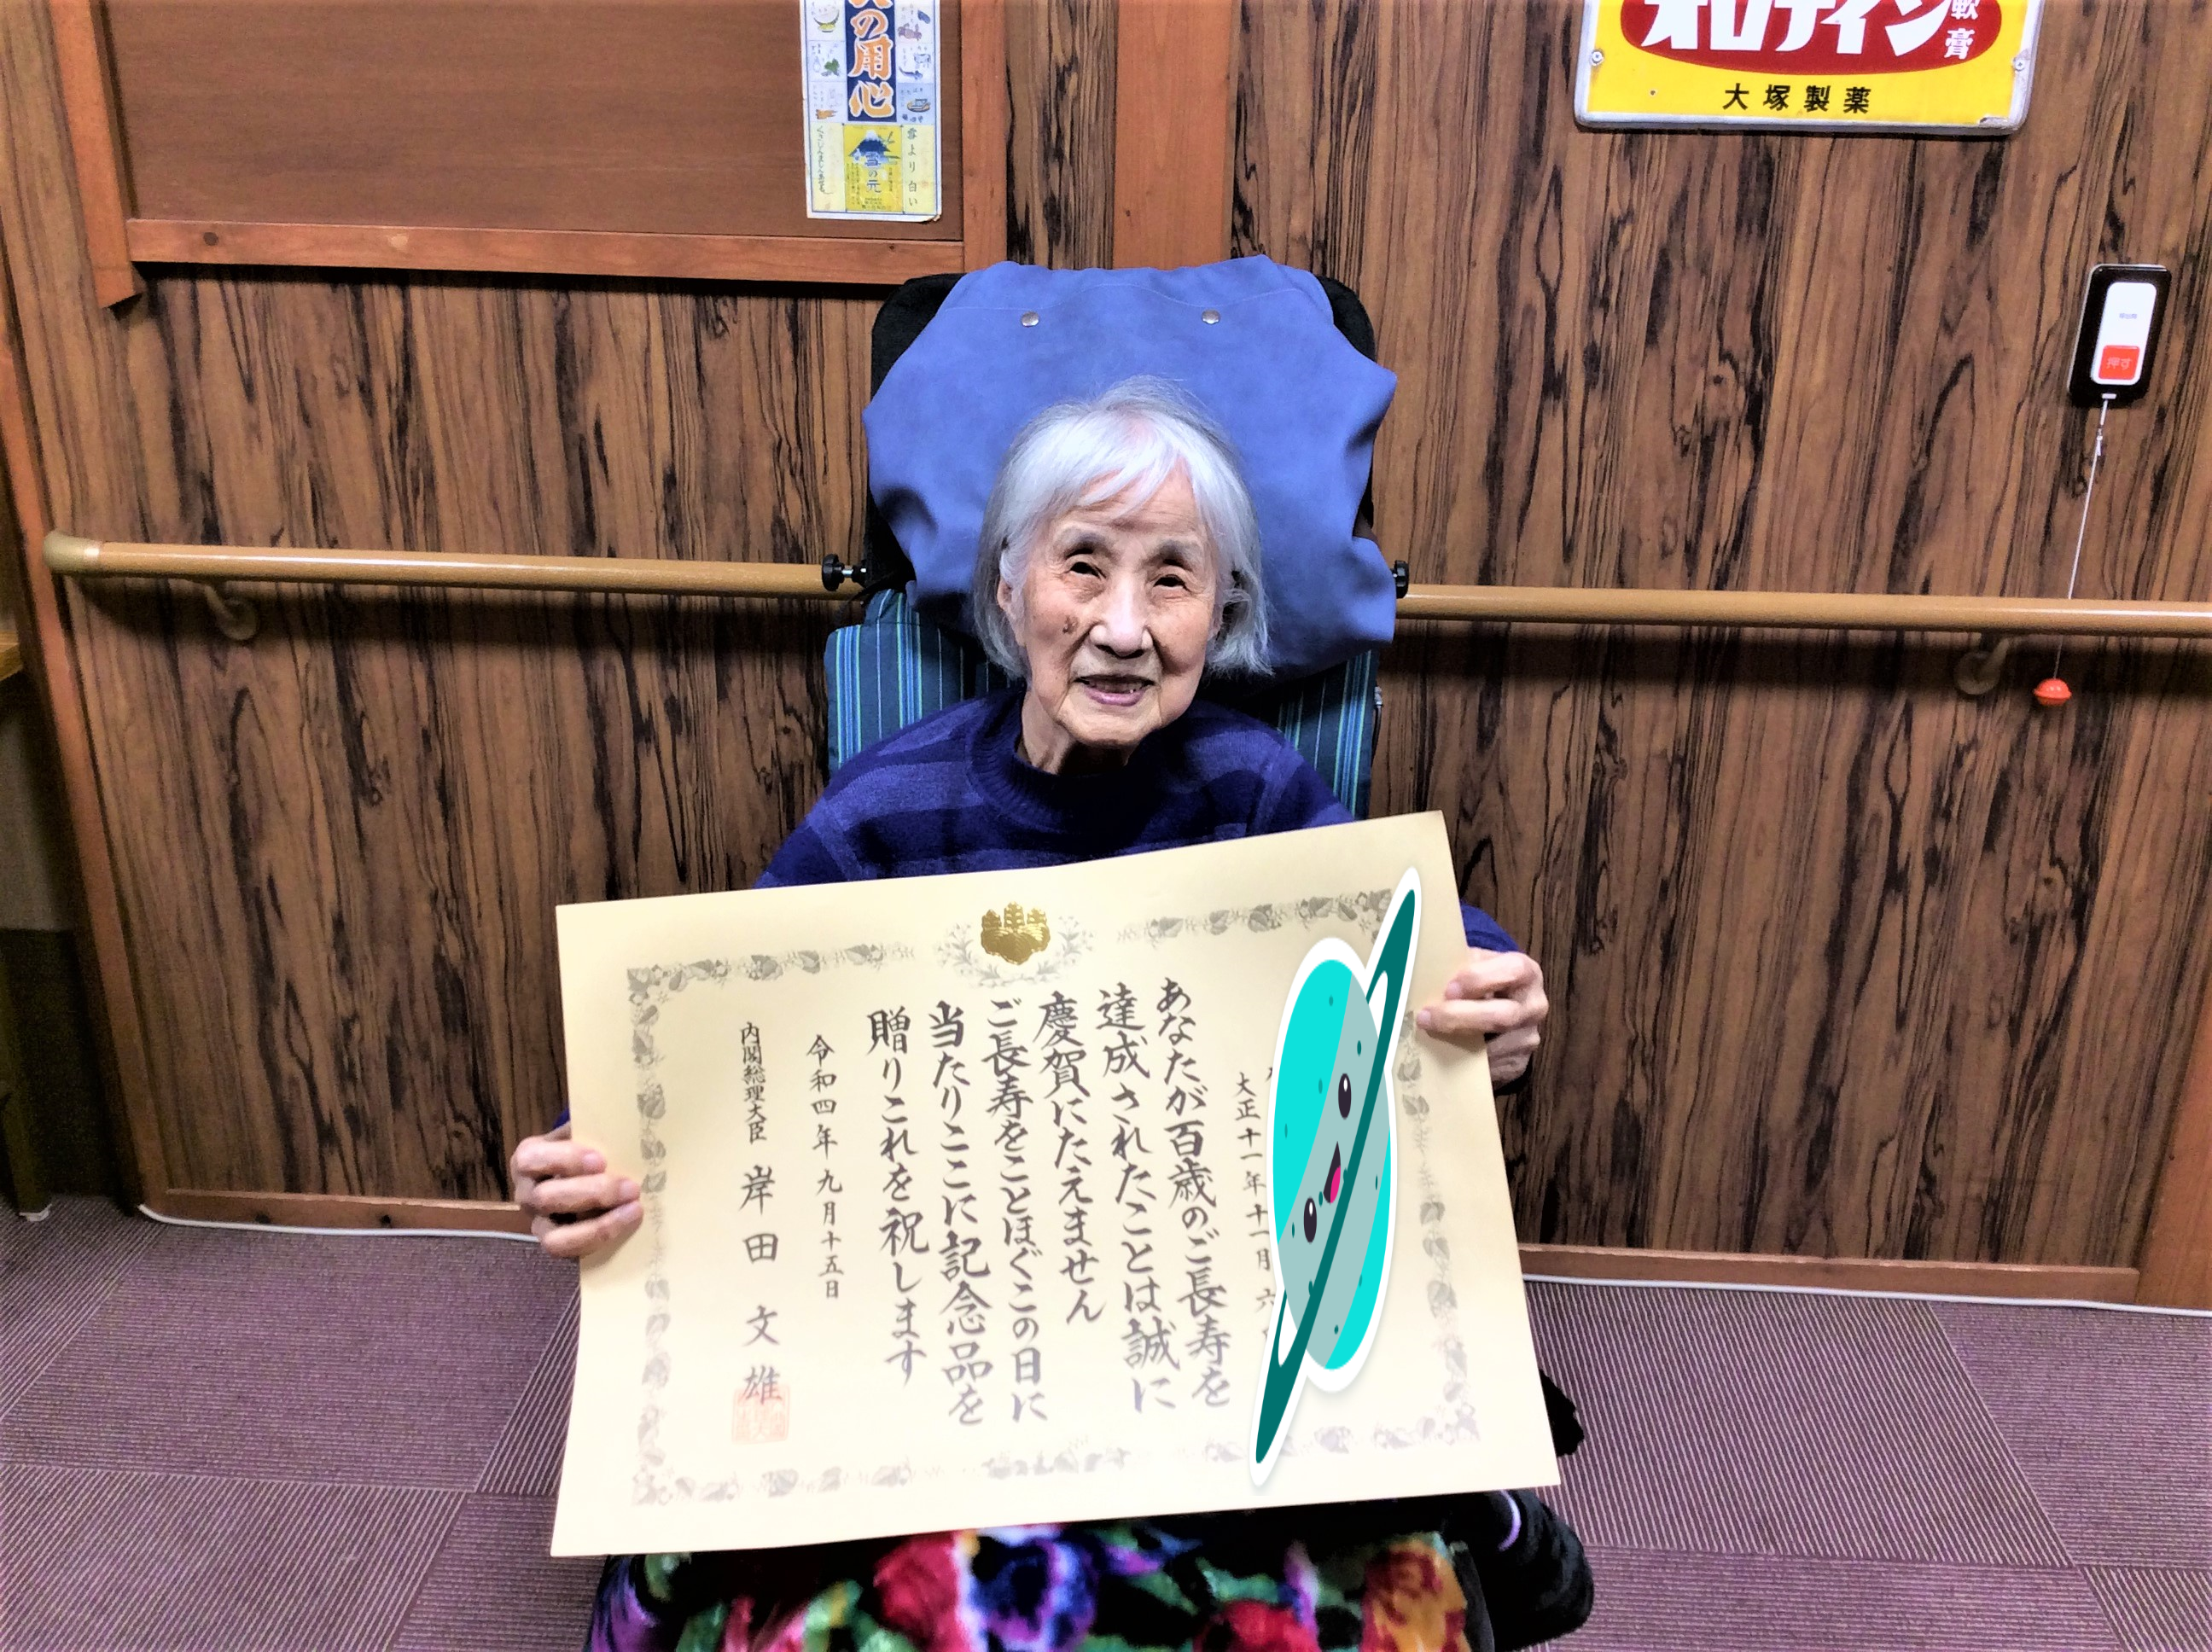 火の用心
雪より白い
雪の元
オロナイン
軟膏
大塚製薬
押す
大正十一年十一月六
あなたが百歳のご長寿を
達成されたことは誠に
慶賀にたえません
ご長寿をことほぐこの日に
当たりここに記念品を
贈りこれを祝します
令和四年九月十五日
内閣総理大臣 岸田文雄